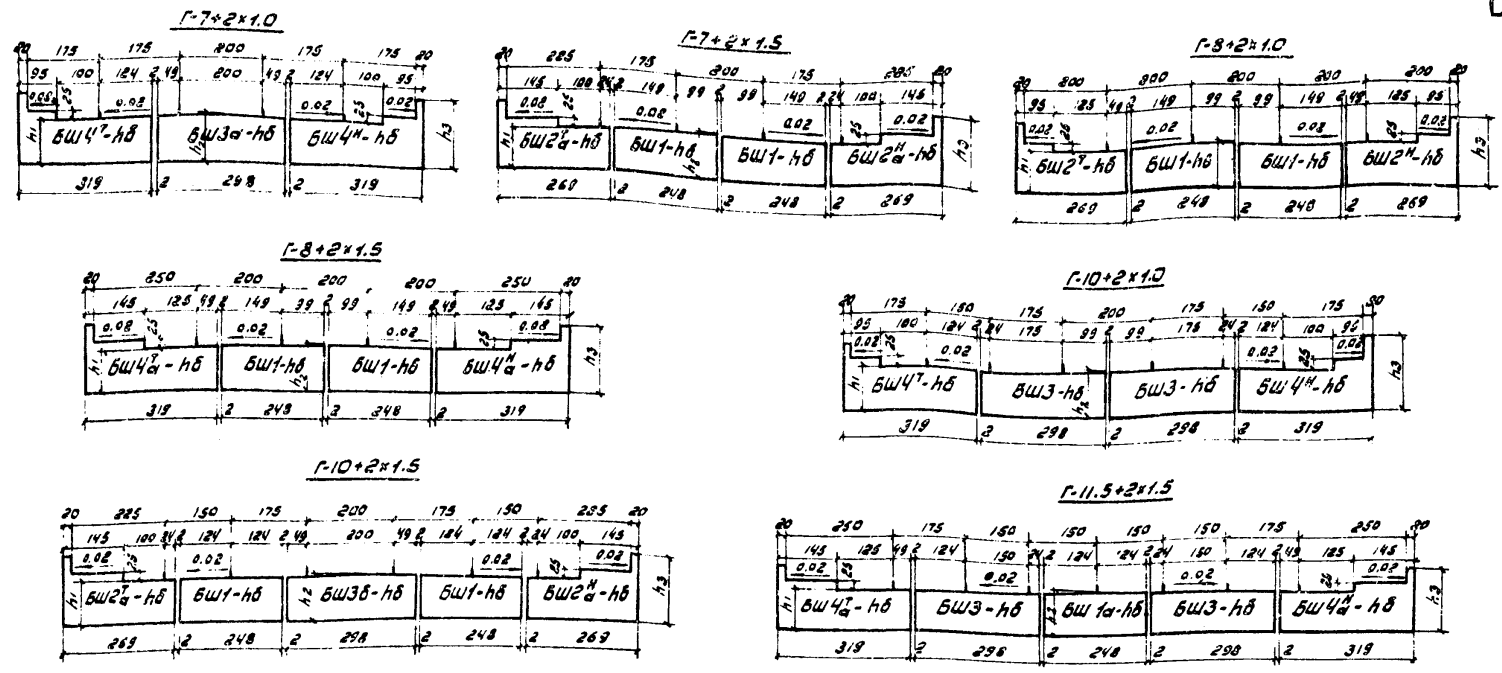 Г-7+2×1.0
20 175 175 200 175 175 20
95 100 124 2 49 200 49 2 124 100 95
0.02 25 0.02 0.02 25 0.02
h1 БШ4Т-hб h2 БШ3а-hб БШ4Н-hб h3
319 2 298 2 319
Г-7+2×1.5
20 225 175 200 175 225 20
145 100 24 2 149 99 2 99 149 2 24 100 145
0.02 25 0.02 0.02 25 0.02
h1 БШ2Та-hб БШ1-hб h2 БШ1-hб БШ2На-hб h3
269 2 248 2 248 2 269
Г-8+2×1.0
20 200 200 200 200 200 20
95 125 49 2 149 99 2 99 149 2 49 125 95
0.02 25 0.02 0.02 25 0.02
h1 БШ2Т-hб БШ1-hб БШ1-hб БШ2Н-hб h3
269 2 248 2 248 2 269
Г-8+2×1.5
20 250 200 200 200 250 20
145 125 49 2 149 99 2 99 149 2 49 125 145
0.02 25 0.02 0.02 25 0.02
h1 БШ4Та-hб БШ1-hб h2 БШ1-hб БШ4На-hб h3
319 2 248 2 248 2 319
Г-10+2×1.0
20 175 150 175 200 175 150 175 20
95 100 124 2 24 175 99 2 99 175 24 2 124 100 95
0.02 25 0.02 0.02 25 0.02
h1 БШ4Т-hб БШ3-hб h2 БШ3-hб БШ4Н-hб h3
319 2 298 2 298 2 319
Г-10+2×1.5
20 225 150 175 200 175 150 225 20
145 100 24 2 124 124 2 49 200 49 2 124 124 2 24 100 145
0.02 25 0.02 0.02 25 0.02
h1 БШ2Та-hб БШ1-hб h2 БШ3б-hб БШ1-hб БШ2На-hб h3
269 2 248 2 298 2 248 2 269
Г-11.5+2×1.5
20 250 175 150 150 150 150 175 250 20
145 125 49 2 124 150 24 2 124 124 2 24 150 124 2 49 125 145
0.02 25 0.02 0.02 25 0.02
h1 БШ4Та-hб БШ3-hб h2 БШ1а-hб БШ3-hб БШ4На-hб h3
319 2 298 2 248 2 298 2 319